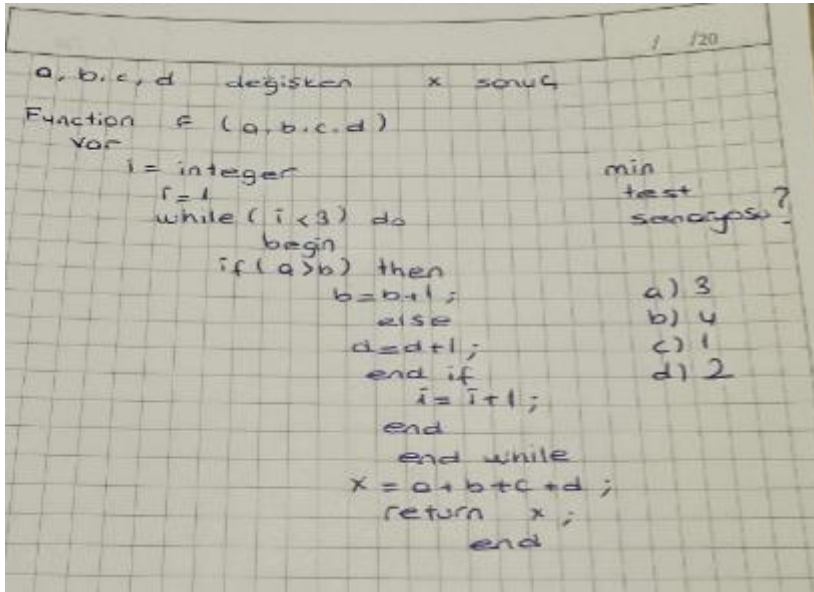 / /20
a, b, c, d değişken x sonuç
Function F (a, b, c, d)
var
i = integer
i = 1
while ( i < 3) do
begin
if (a>b) then
b=b+1;
else
d=d+1;
end if
i = i+1;
end
end while
x = a+b+c+d;
return x;
end
min
test
senaryosu?
a) 3
b) 4
c) 1
d) 2